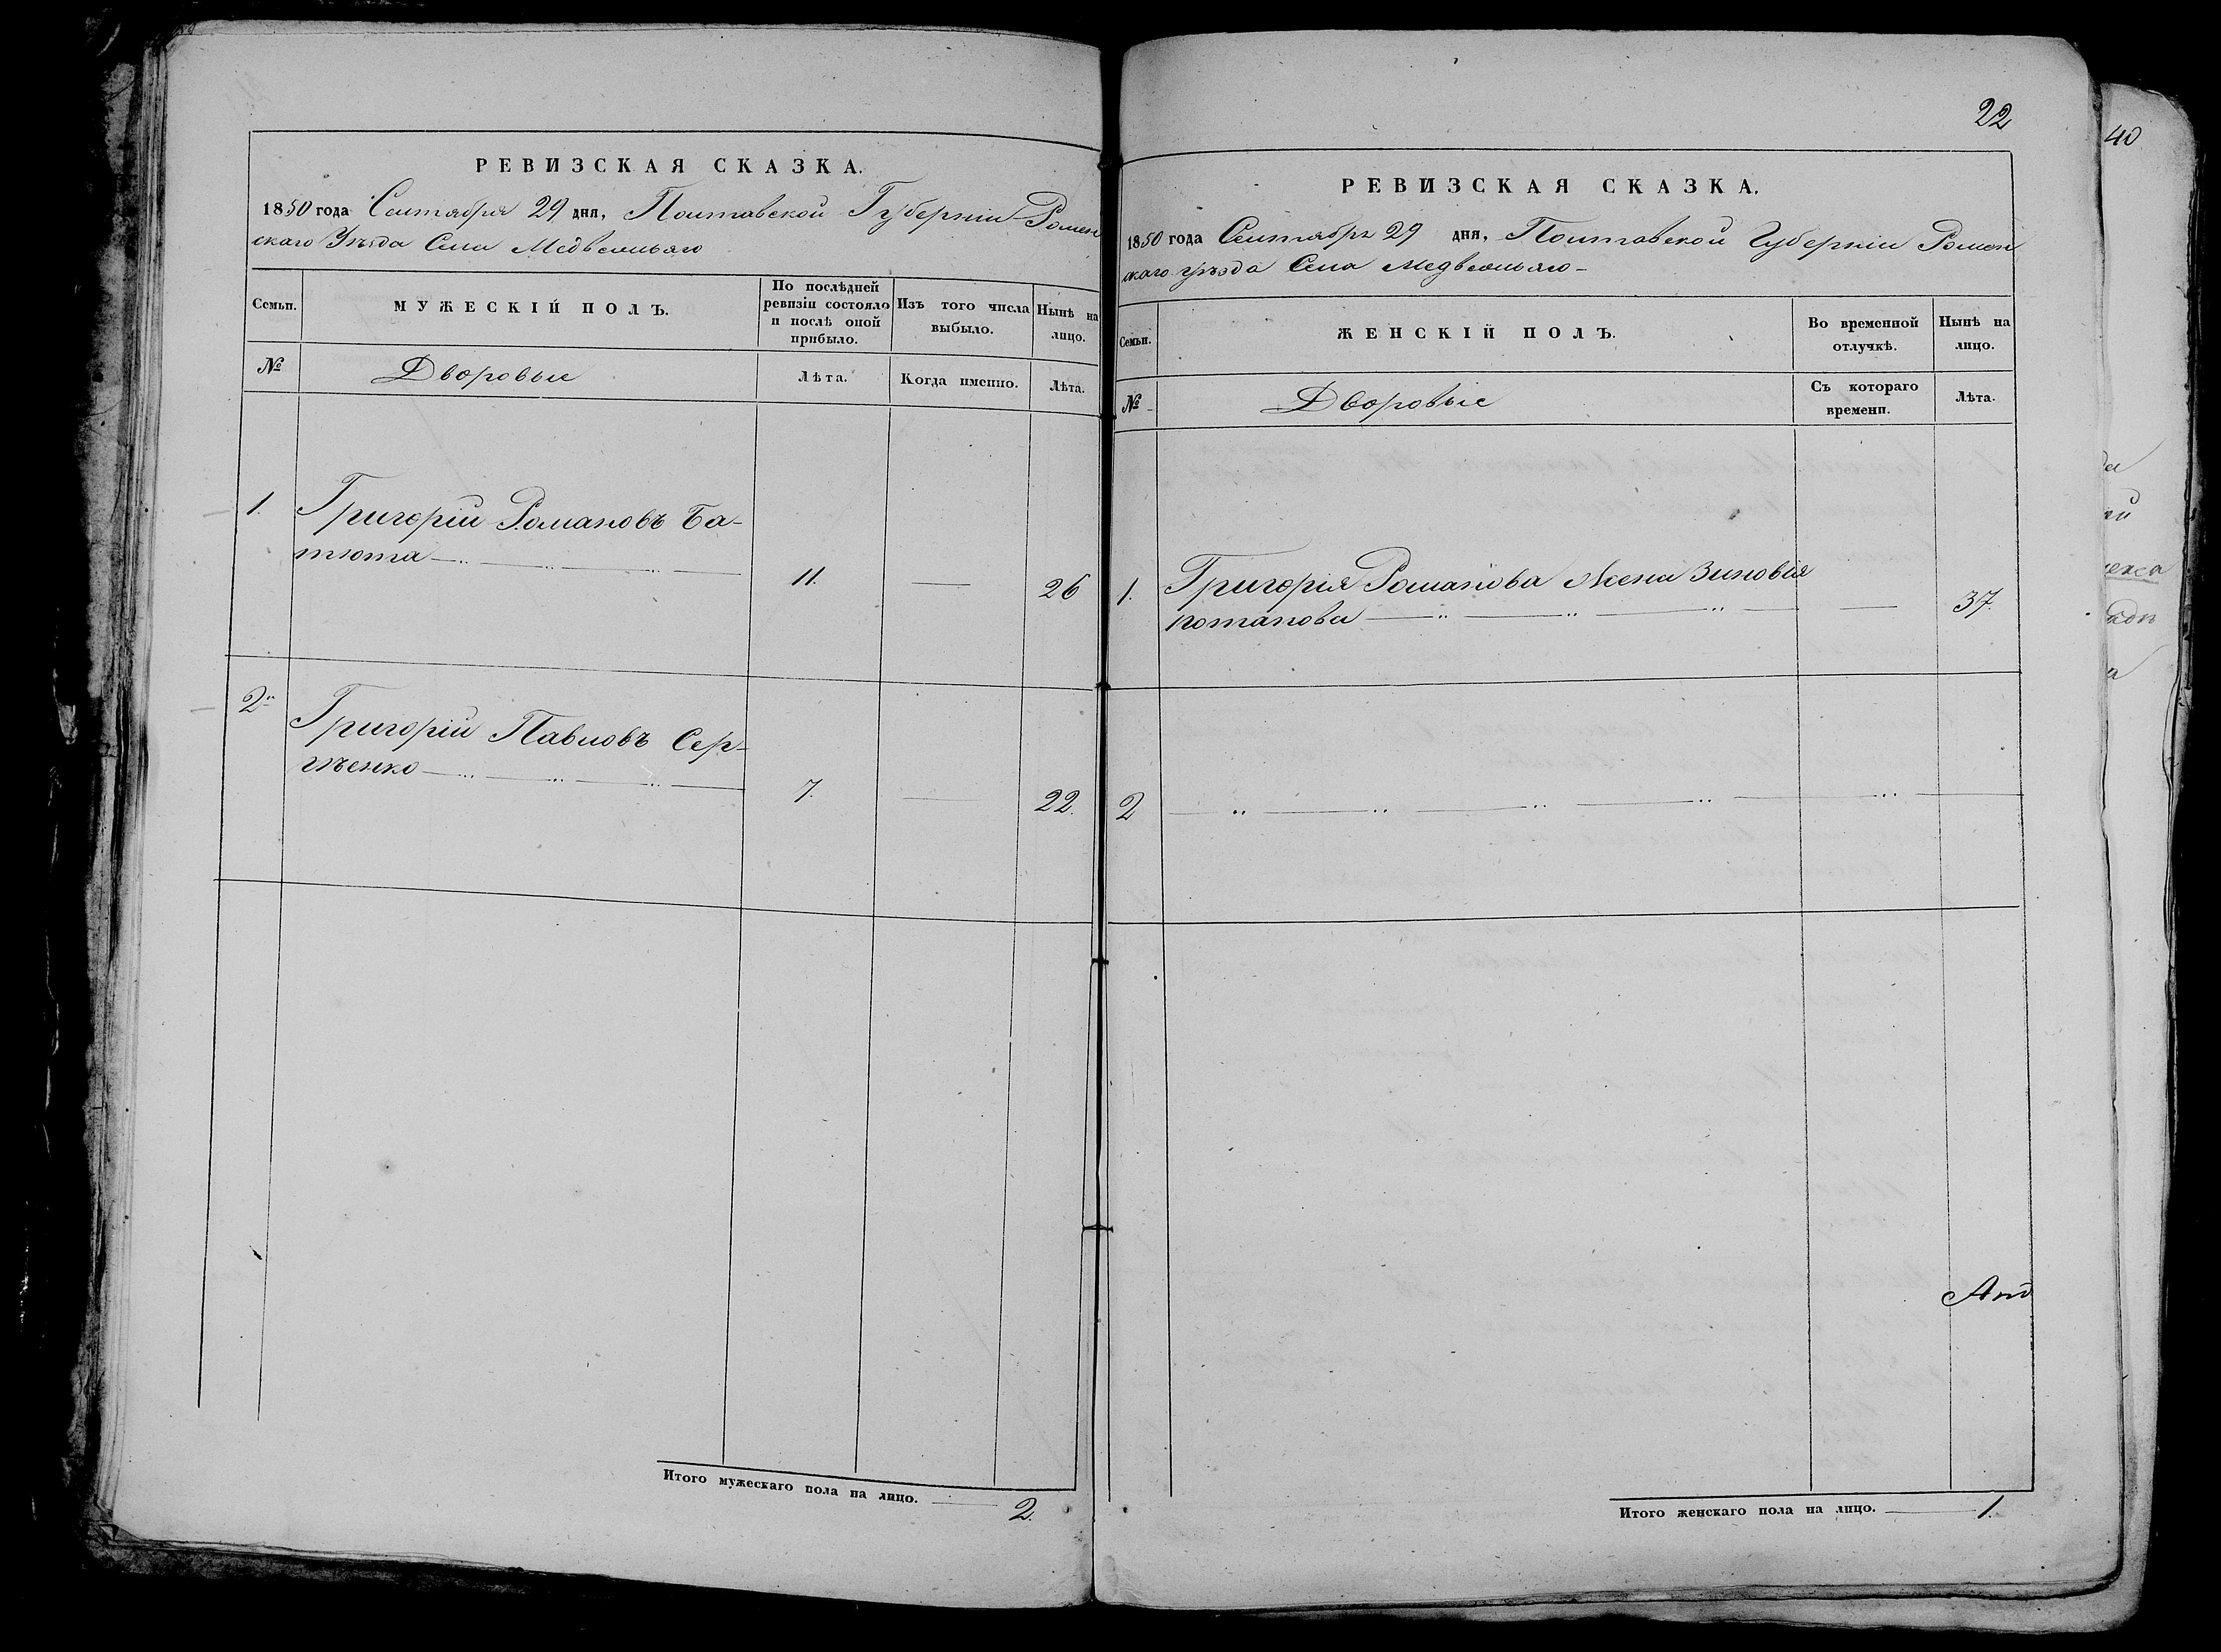 РЕВИЗСКАЯ СКАЗКА.
1850 года Сентября 29 дня, Полтавской Губерніи Ромен
скаго Уѣзда Села Медвежьяго
Семьи.
МУЖЕСКІЙ ПОЛЪ.
По послѣдней
ревизіи состояло
и послѣ оной
прибыло.
Изъ того числа
выбыло.
Нынѣ на
лицо.
№
Дворовые
Лѣта.
Когда именно.
Лѣта.
1. Григорій Романовъ Ба-
тюта 11. — 26
2. Григорій Павловъ Сер-
гѣенко 7. — 22.
Итого мужескаго пола на лицо. — 2.
22
РЕВИЗСКАЯ СКАЗКА.
1850 года Сентября 29 дня, Полтавской Губерніи Ромен
скаго уѣзда Села Медвежьяго
Семьи.
ЖЕНСКІЙ ПОЛЪ.
Во временной
отлучкѣ.
Нынѣ на
лицо.
№
Дворовые
Съ котораго
времени.
Лѣта.
1. Григорія Романова Жена Зиновія
Потапова — 37.
2
Итого женскаго пола на лицо. — 1.
40